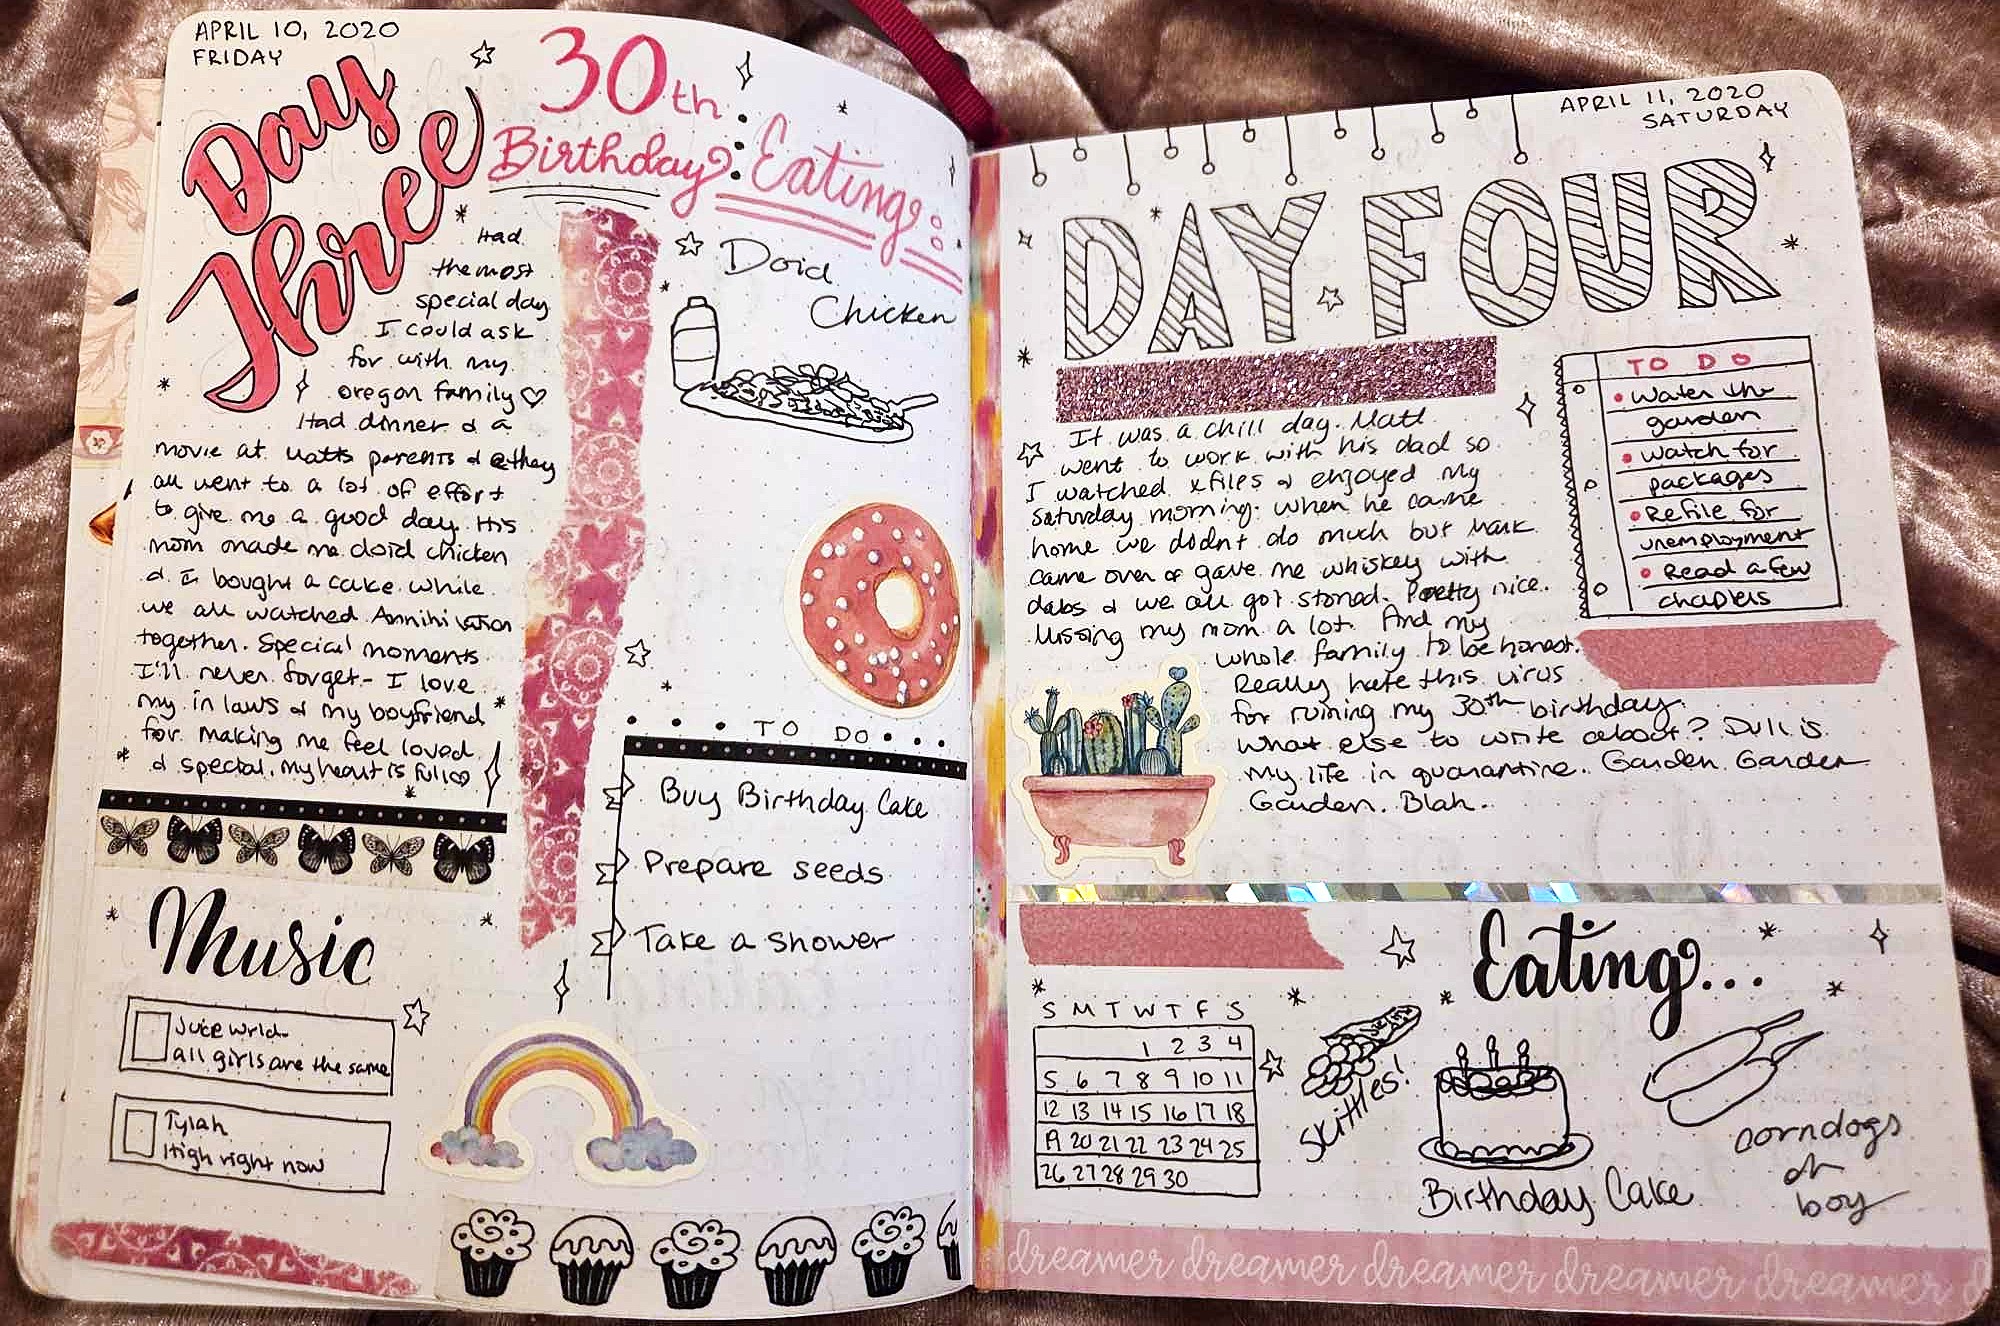 APRIL 10, 2020
FRIDAY
Day
Three
30th
Birthday
Had
the most
special day
I could ask
for with my
oregon family
Had dinner & a
movie at Matts parents & they
all went to a lot of effort
to give me a good day. His
mom made me doid chicken
& I bought a cake while
we all watched Annihilation
together. Special moments
I'll never forget - I love
my in laws & my boyfriend
for making me feel loved
& special. my heart is full
Music
Juce wrld
all girls are the same
Tylah
High right now
Eating:
Doid
Chicken
TO DO
Buy Birthday Cake
Prepare seeds
Take a shower
APRIL 11, 2020
SATURDAY
DAY FOUR
It was a chill day. Matt
went to work with his dad so
I watched xfiles & enjoyed my
saturday morning. When he came
home we didnt do much but Mark
came over & gave me whiskey with
dabs & we all got stoned. Pretty nice.
Missing my mom a lot. And my
whole family to be honest.
Really hate this virus
for ruining my 30th birthday.
What else to write about? Dull is
my life in quarantine. Garden. Garden
Garden. Blah.
TO DO
Water the
garden
Watch for
packages
Refile for
unemployment
Read a few
chapters
Eating...
S M T W T F S
1 2 3 4
5 6 7 8 9 10 11
12 13 14 15 16 17 18
19 20 21 22 23 24 25
26 27 28 29 30
Skittles!
Birthday Cake
corndogs
oh
boy
dreamer dreamer dreamer dreamer dreamer d